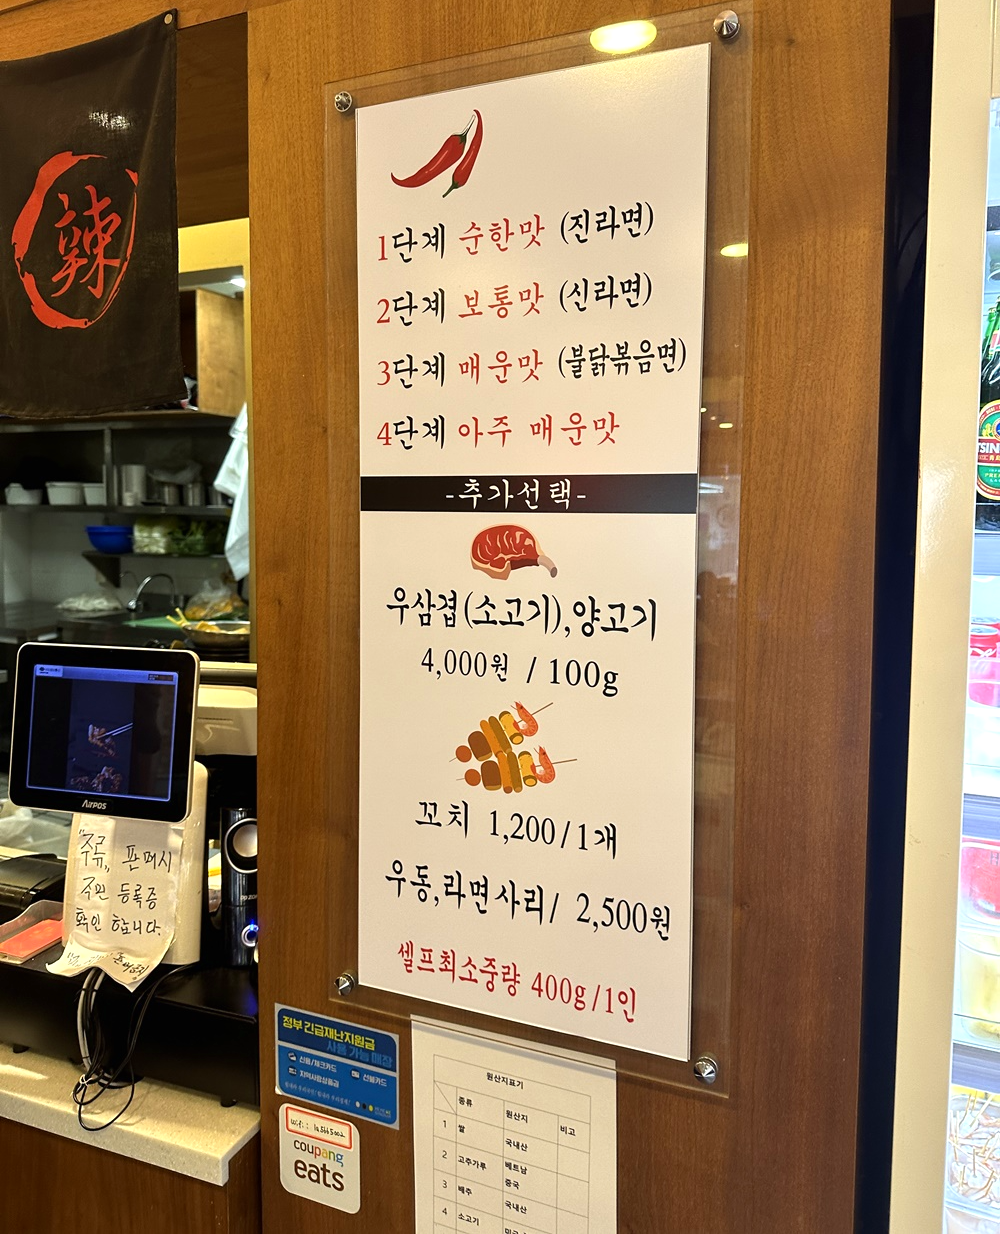 辣
1단계 순한맛 (진라면)
2단계 보통맛 (신라면)
3단계 매운맛 (불닭볶음면)
4단계 아주 매운맛
-추가선택-
우삼겹(소고기),양고기
4,000원 / 100g
꼬치 1,200/1개
우동,라면사리/ 2,500원
셀프최소중량 400g/1인
AirPOS
"주류" 판매시
주민 등록증
확인 합니다.
정부 긴급재난지원금
사용 가능 매장
신용/체크카드
선불카드
지역사랑상품권
coupang
eats
원산지표기
종류 원산지 비고
1 쌀 국내산
2 고추가루 베트남
중국
3 배추 국내산
4 소고기
TSIN